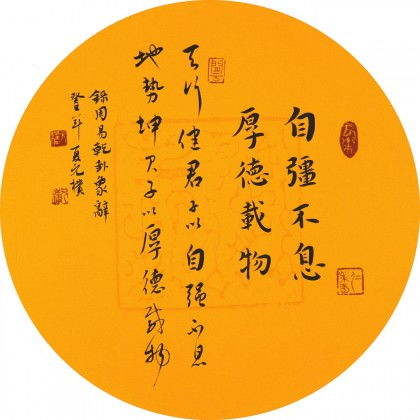 自彊不息
厚德載物
天行健君子以自强不息
地勢坤君子以厚德載物
錄周易乾卦象辭
夏元樸